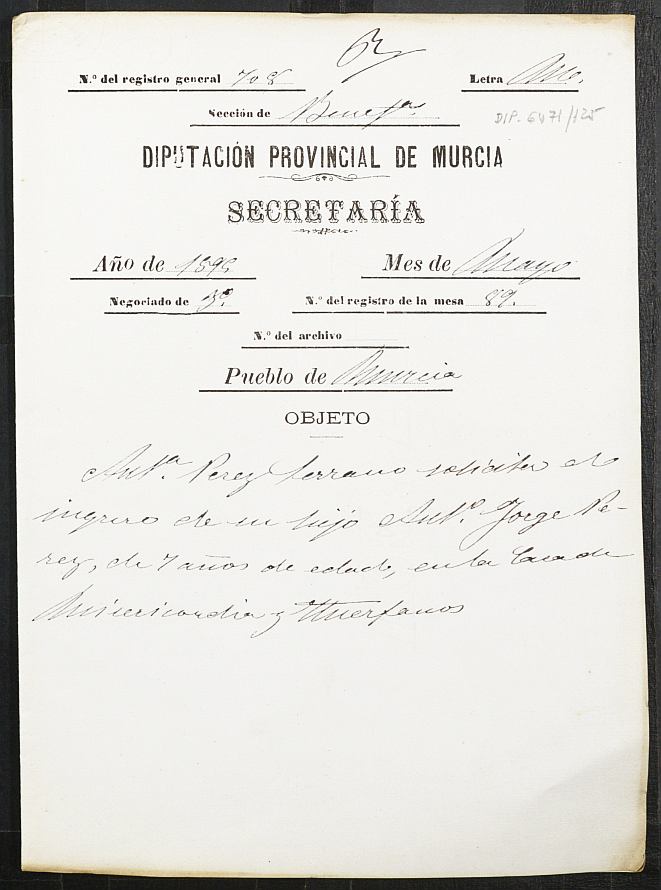 N.º del registro general 708
Letra
Sección de Benefª
DIP. 6471/125
DIPUTACIÓN PROVINCIAL DE MURCIA
SECRETARÍA
Año de 1899
Mes de Mayo
Negociado de 3º
N.º del registro de la mesa 89.
N.º del archivo
Pueblo de Murcia
OBJETO
Antª. Perez Serrano solicita el
ingreso de su hijo Antº. Jorge Pe-
rez, de 7 años de edad, en la Casa de
Misericordia y Huerfanos